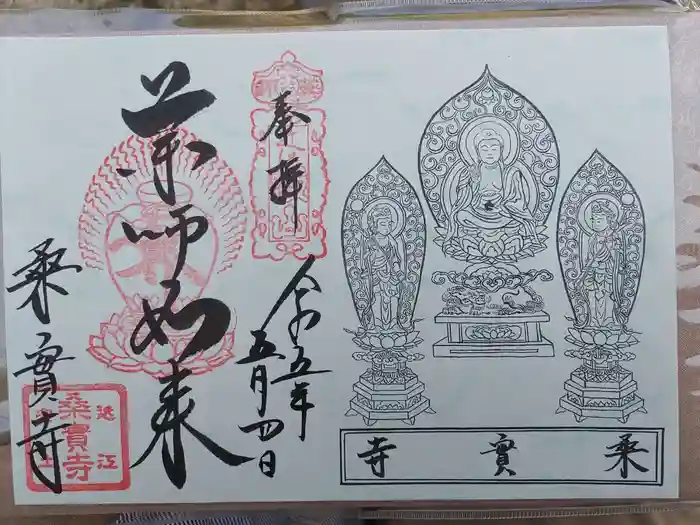 奉拝
令和五年
五月四日
薬師如来
桑實寺
近江
桑實寺
桑實寺